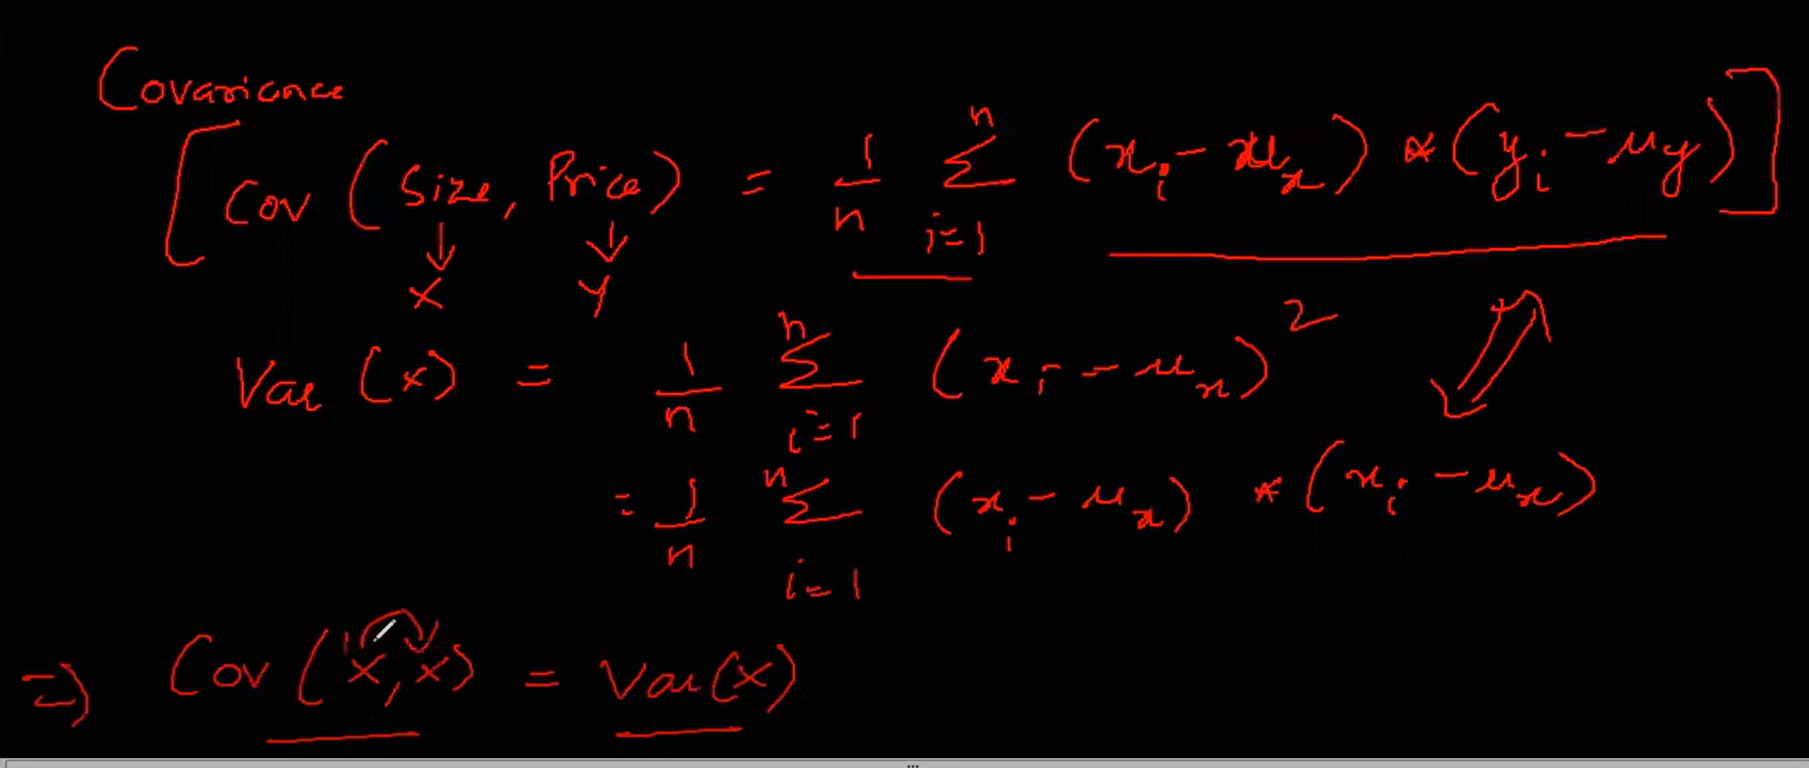 Covariance
[Cov (Size, Price) = 1/n n∑i=1 (xᵢ - μₓ) * (yᵢ - μy)]
↓ ↓
X Y
Var (x) = 1/n n∑i=1 (xᵢ - μₓ)²
= 1/n n∑i=1 (xᵢ - μₓ) * (xᵢ - μₓ)
=> Cov (x, x) = Var(x)